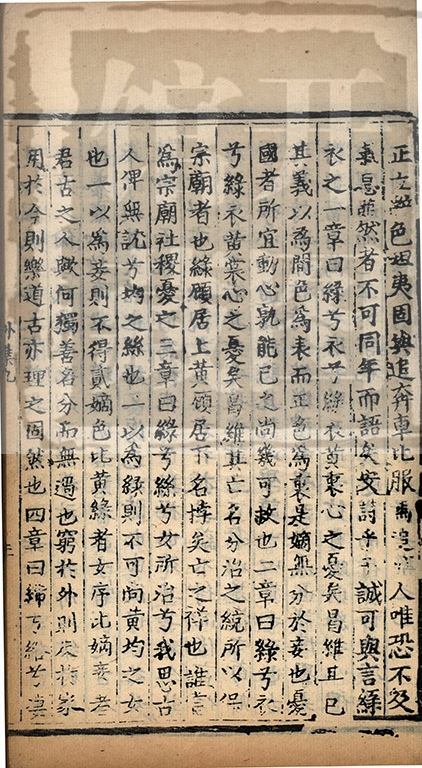 正立無色坦夷固與追奔車比服馬人唯恐不及
氣息茀然者不可同年而語矣安詩乎誠可與言綠
衣之一章曰綠兮衣兮綠衣黃裏心之憂矣曷維其已
其義以為間色為表而正色為裏是嫡無分於妾也憂
國者所宜動心孰能已之尚幾可救也二章曰綠兮衣
兮綠衣黃裳心之憂矣曷維其亡名分治之統所以保
宗廟者也綠顧居上黃顧居下名摔矣亡之祥也誰言
為宗廟社稷憂之三章曰綠兮絲兮女所治兮我思古
人俾無訧兮均之絲也一以為綠則不可向黃均之女
也一以為妾則不得貳嫡色比黃綠者女序比嫡妾者
君古之人歟何獨善名分而無過也窮於外則反於家
用於今則樂道古亦理之固然也四章曰絺兮綌兮淒
外集九